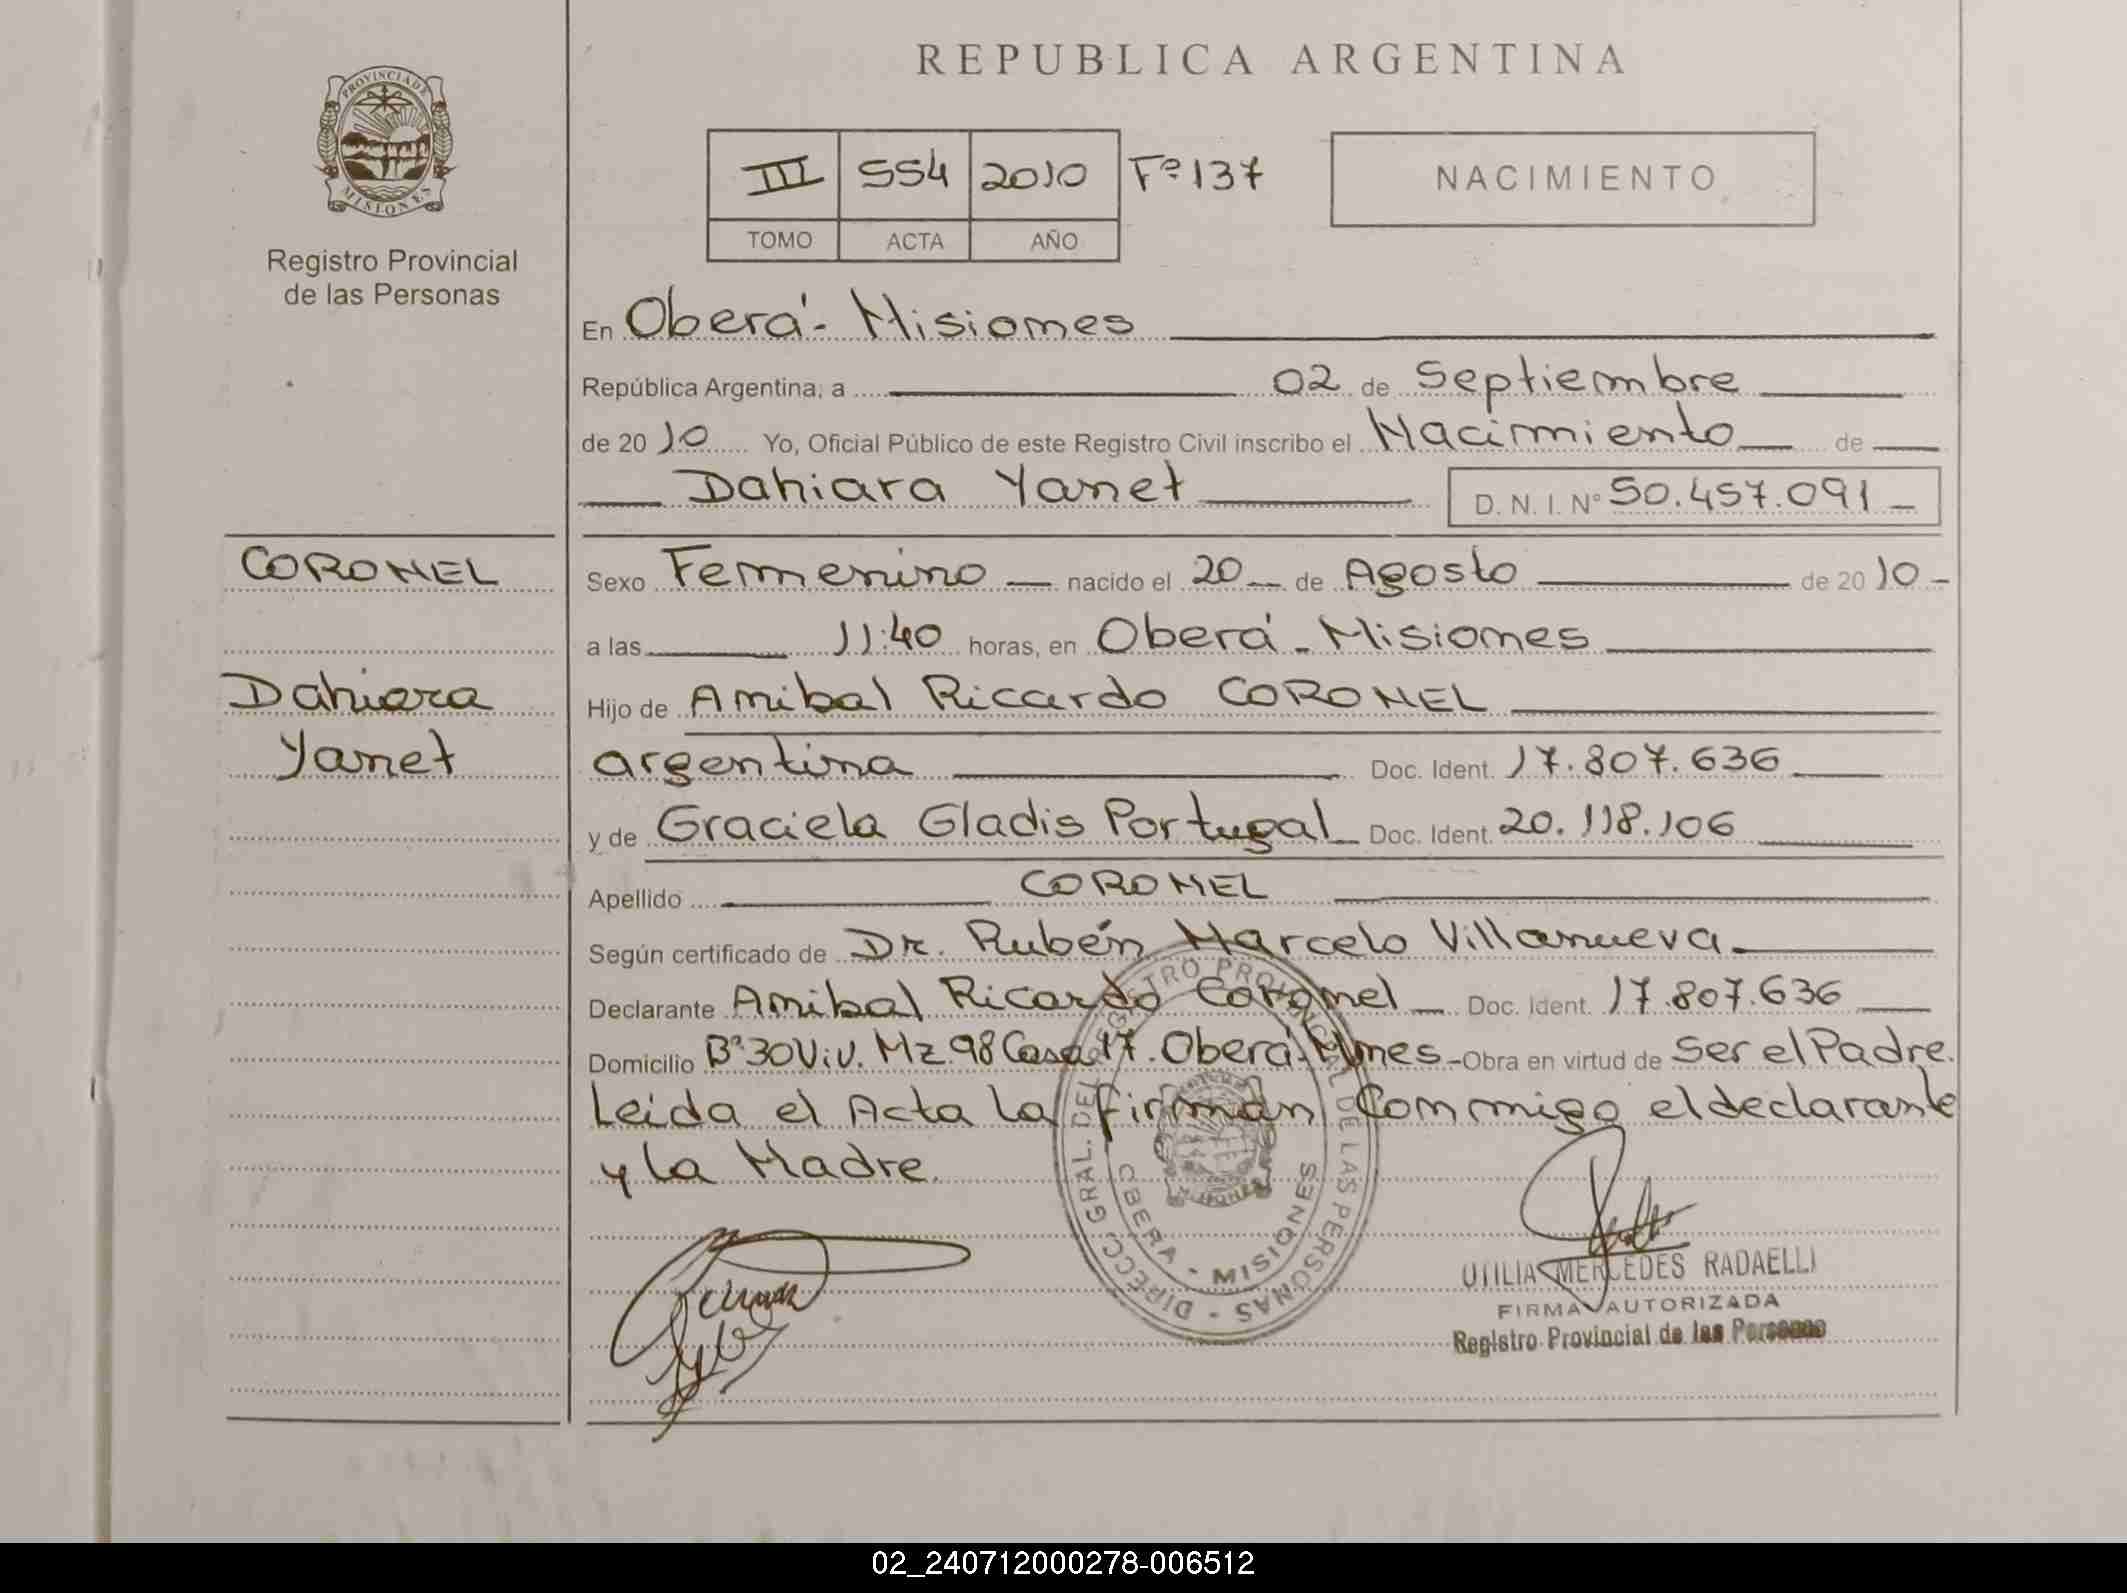 REPUBLICA ARGENTINA
PROVINCIA DE MISIONES
Registro Provincial
de las Personas
III 554 2010 Fº 137
TOMO ACTA AÑO
NACIMIENTO
En Oberá - Misiones
República Argentina, a 02 de Septiembre
de 2010 Yo, Oficial Público de este Registro Civil inscribo el Nacimiento de
Dahiara Yanet D. N. I. Nº 50.457.091
CORONEL
Dahiara
Yanet
Sexo Femenino nacido el 20 de Agosto de 2010
a las 11:40 horas, en Oberá - Misiones
Hijo de Anibal Riccardo CORONEL
argentina Doc. Ident. 17.807.636
y de Graciela Gladis Portugal Doc. Ident. 20.118.106
Apellido CORONEL
Según certificado de Dr. Rubén Marcelo Villanueva
Declarante Anibal Ricardo Coronel Doc. Ident. 17.807.636
Domicilio Bº 30 Viv. Mz 98 Casa 17. Oberá. Mnes - Obra en virtud de Ser el Padre.
Leida el Acta la firman Conmigo el declarante
y la Madre.
DIRECC. GRAL. DEL REGISTRO PROVINCIAL DE LAS PERSONAS
OBERA - MISIONES
OTILIA MERCEDES RADAELLI
FIRMA AUTORIZADA
Registro Provincial de las Personas
02_240712000278-006512